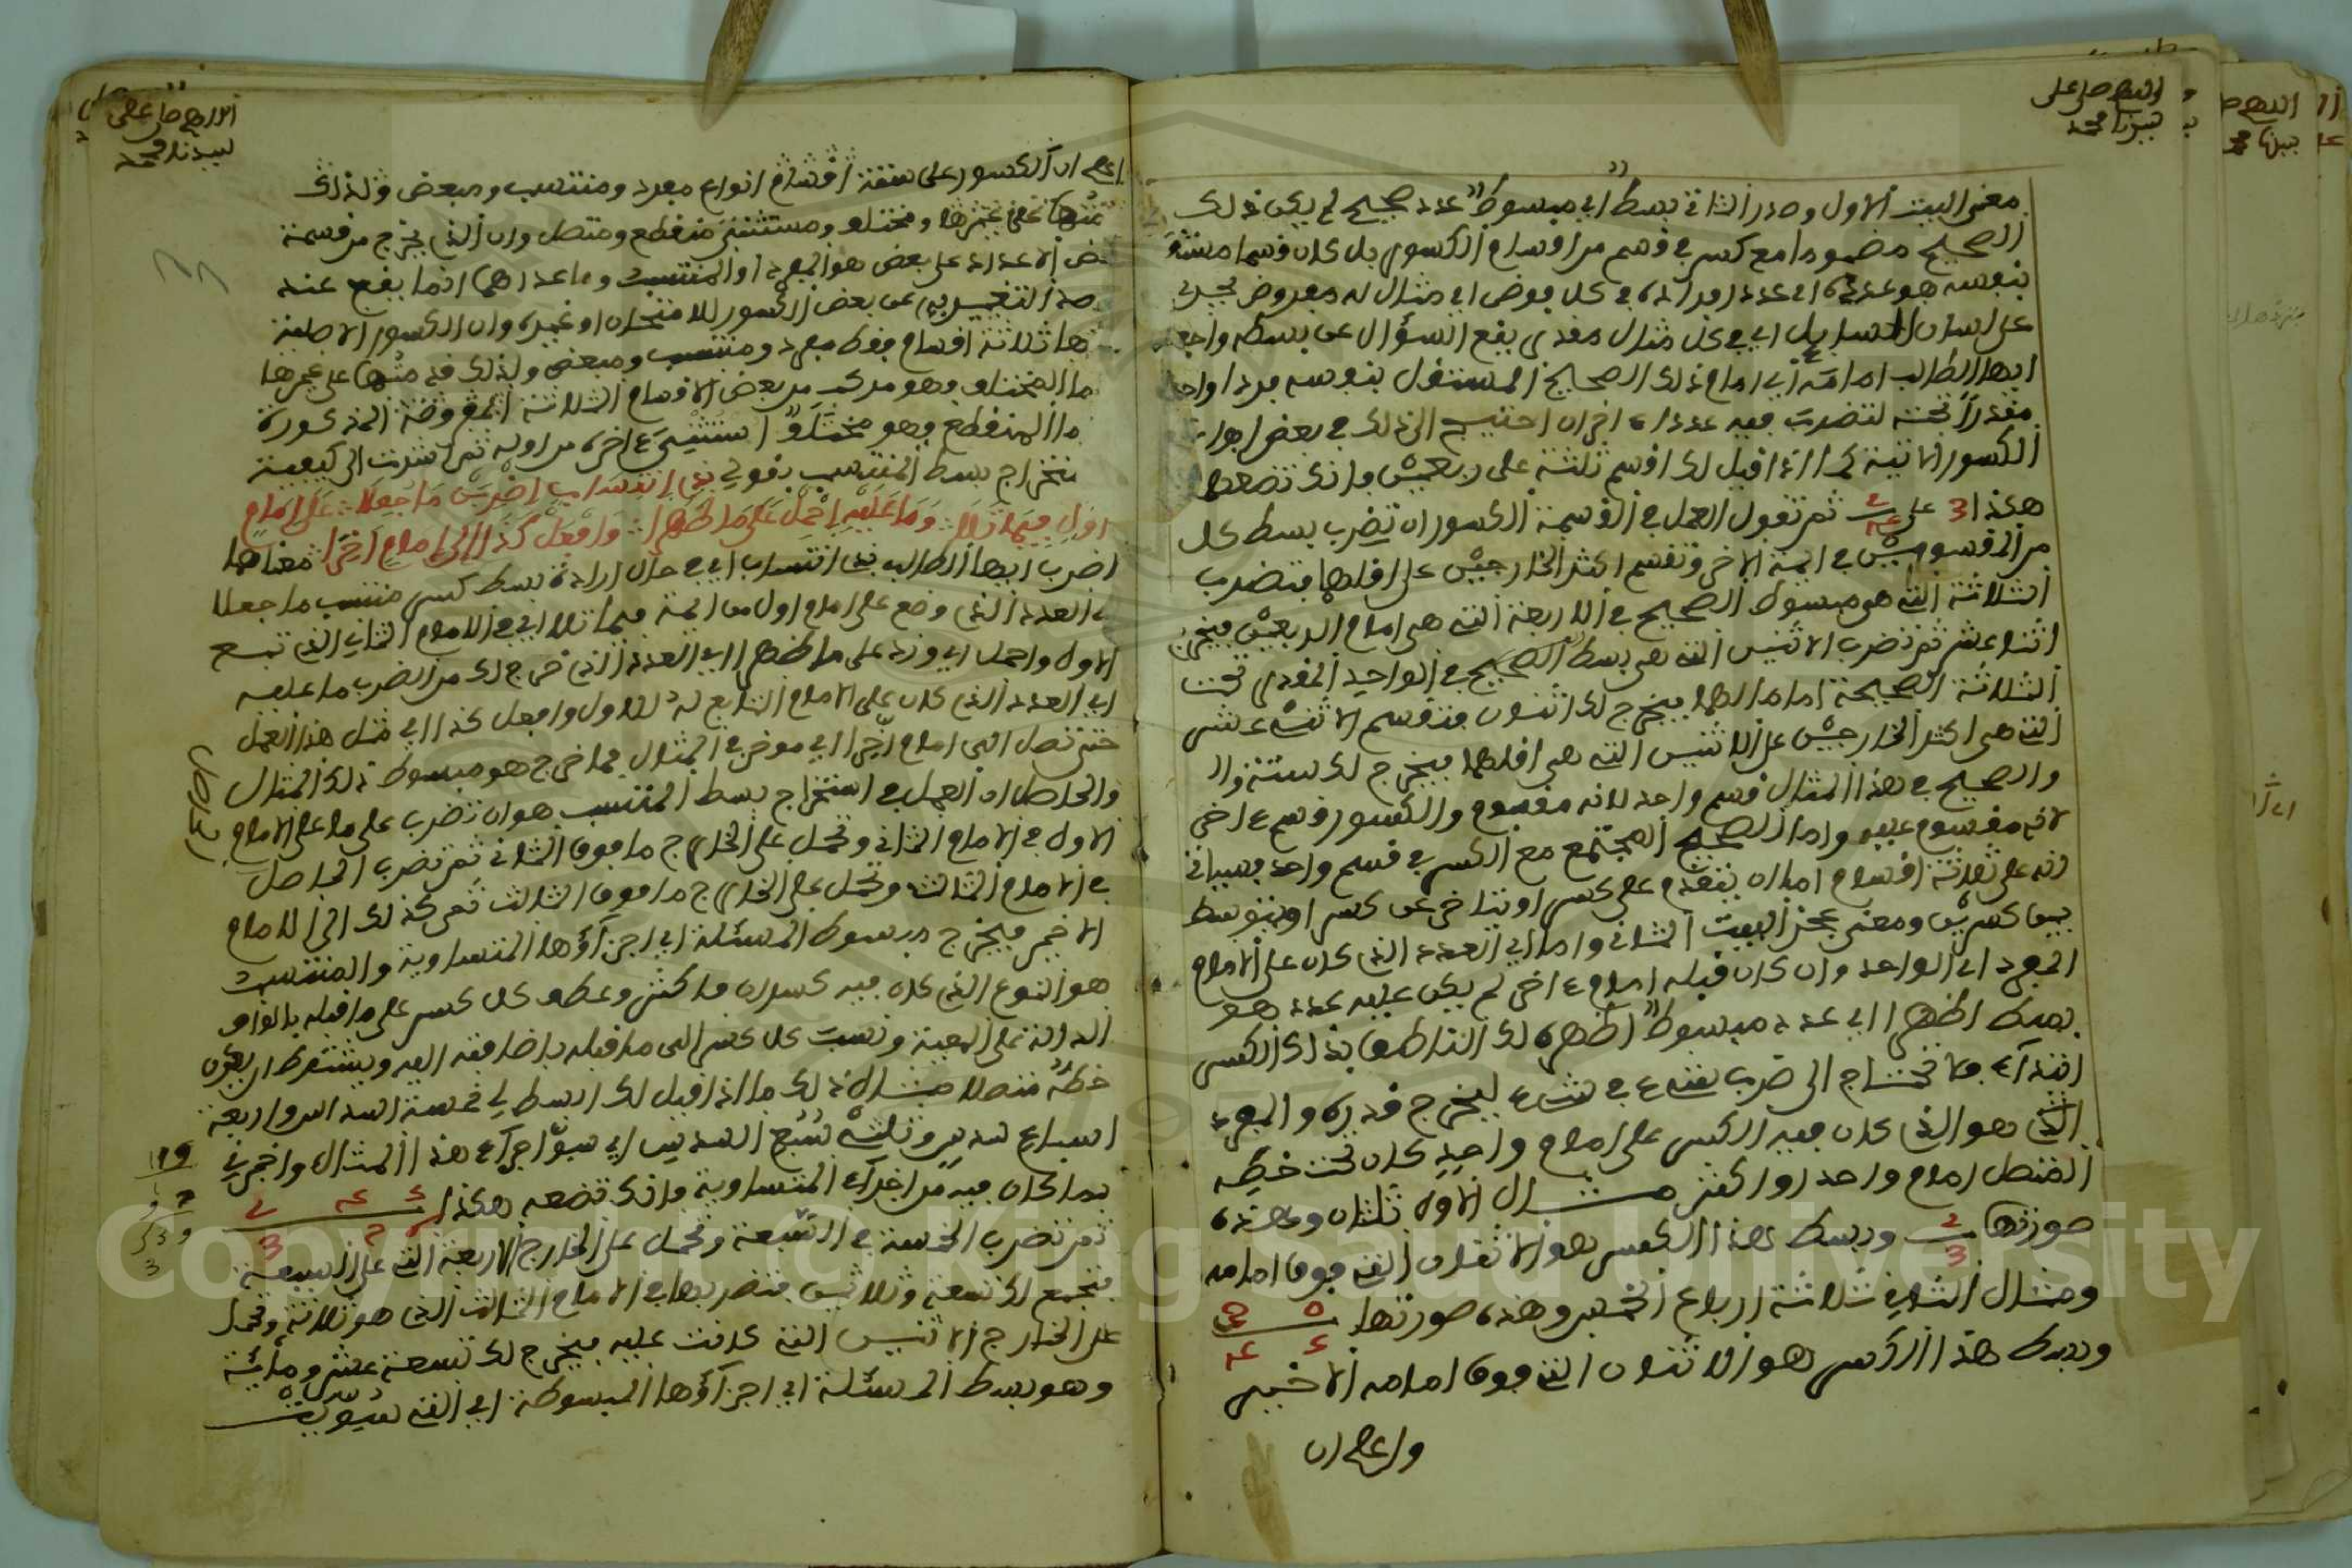 اللهم صل على
سيدنا محمد
معنى البيت الاول وصدر الثاني بسط اي مبسوط عدد صحيح لم يكن ذلك
الصحيح مضموما مع كسر في قسم من اقسام الكسور بل كان قسما مستقلا
بنفسه هو عدده اي عدد افراده في كل فرض اي مثال له مفروض يجري
على لسان السايل اي في كل مثال مقدر يقع السؤال عن بسطه واجعل
ايها الطالب امامه اي امام ذلك الصحيح المستقل بنفسه فردا واحدا
مقدرا تحته لتضرب فيه عددا اخر ان احتيج الى ذلك في بعض ابواب
الكسور الاتية كما اذا قيل لك اقسم ثلثة على ربعين فانك تضعها
هكذا 3 على 2 ثم تقول العمل في القسمة الكسور ان تضرب بسط كل
من المقسومين في ايمة الاخر وتقسم اكثر الخارجين على اقلهما فتضرب
الثلاثة التي هي مبسوط الصحيح في الاربعة التي هي امام الربعين فيخرج
اثنا عشر ثم تضرب الاثنين التي هي بسط الصحيح في الواحد المقدر تحت
الثلاثة الصحيحة اماما لها فيخرج لك اثنان فتقسم الاثني عشر
التي هي اكثر الخارجين على الاثنين التي هي اقلهما فيخرج لك ستة وا
والصحيح في هذا المثال قسم واحد لانه مقسوم والكسور قسم ءاخر
لانه مقسوم عليه واما الصحيح المجتمع مع الكسر في قسم واحد فسياتي
انه على ثلاثة اقسام اما ان يتقدم على كسر او يتاخر عن كسر او يتوسط
بين كسرين ومعنى عجز البيت الثاني واما اي العدد الذي كان على الامام
المفرد اي الواحد وان كان قبله امام ءاخر لم يكن عليه عدد هو
بسط اظهرا اي عدد مبسوط اظهره لك الناطق بذلك الكسر
ابتداء فلا تحتاج الى ضرب شيء في شيء ليخرج قدره والمفرد
الذي هو الذي كان فيه الكسر على امام واحد كان تحت خطه
المتصل امام واحد او اكثر مثال الاول ثلثان وهذه
صورتها 2 3 وبسط هذا الكسر هو الاثنان التي فوق امامه
ومثال الثاني ثلاثة ارباع الخمس وهذه صورتها
وبسط هذا الكسر هو الاثنان التي فوق امامه الاخير
واعلم ان
اللهم صل على
سيدنا محمد
اعلم ان الكسور على ستة اقسام انواع مفرد ومنتسب ومبعض ولذلك
على غيرها ومختلف ومستثنى منقطع ومتصل وان الذي يخرج من قسمة
بعض الاعداد على بعض هو المفرد او المنتسب وما عداهما انما يقع عند
التعبير به عن بعض الكسور للامتحان او غيره وان الكسور الاصلية
ثلاثة اقسام فقط مفرد ومنتسب ومبعض ولذلك قدمتها على غيرها
اما المختلف فهو مركب من بعض الاقسام الثلاثة المفروضة المذكورة
اما المنقطع فهو مختلف استثني ءاخره من اوله ثم اشرت الى كيفية
استخراج بسط المنتسب بقولي ذي انتساب اضربن ما جعلا على امام
اول فيما تلا وما عليه احمل على ما ظهرا وافعل كذا الى امام اخرا معناها
اضرب ايها الطالب ذي انتساب اي في حال ارادة بسط كسر منتسب ما جعلا
اي العدد الذي وضع على امام اول من ايمة فيما تلا اي في الامام الثاني الذي تبع
الاول واحمل اي وزد على ما ظهرا اي العدد الذي خرج لك من الضرب ما عليه
اي العدد الذي كان على الامام التابع له للاول وافعل كذا اي مثل هذا العمل
حتى تصل الى امام اخرا اي موخر في المثال فما خرج هو مبسوط ذلك المثال
والحاصل ان العمل في استخراج بسط المنتسب هو ان تضرب على ما على الامام
الاول في الامام الثاني وتحمل على الخارج ما فوق الثاني ثم تضرب الحاصل
في الامام الثالث وتحمل على الخارج ما فوق الثالث ثم كذلك الى الامام
الاخير فيخرج مبسوط المسئلة اي اجزاؤها المتساوية والمنتسب
هو النوع الذي كان فيه كسران فاكثر وعطف كل كسر على ما قبله بالواو
الدالة على المعية ونسب كل كسر الى ما قبله باضافته اليه ويشترط ان يكون
خطه متصلا مثال ذلك ما اذا قيل لك ابسط لي خمسة اسداس واربعة
اسباع سدس وثلثي سبع السدس اي سو اجزاء هذا المثال واخبرني
بما كان فيه من اجزاء المتساوية فانك تضعه هكذا
ثم تضرب الخمسة في السبعة وتحمل على الخارج الاربعة التي على السبعة
فيجتمع لك تسعة وثلاثين فتضربها في الامام الثالث الذي هو ثلاثة وتحمل
على الخارج الاثنين التي كانت عليه فيخرج لك تسعة عشر ومائة
وهو بسط المسئلة اي اجزاؤها المبسوطة اي التي سويت
Copyright © King Saud University